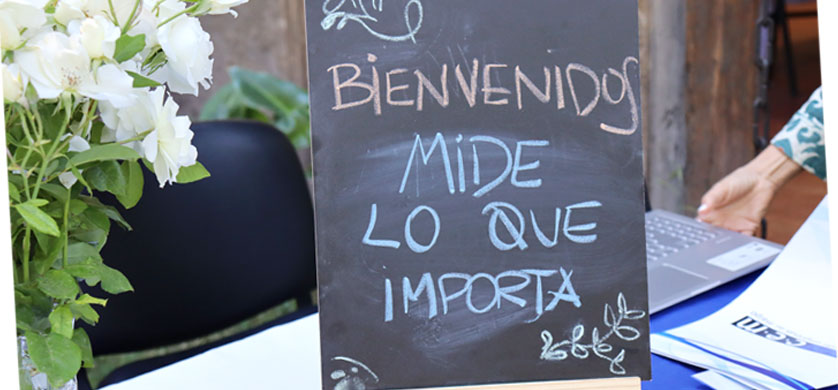 BIENVENIDOS
MIDE
LO QUE
IMPORTA